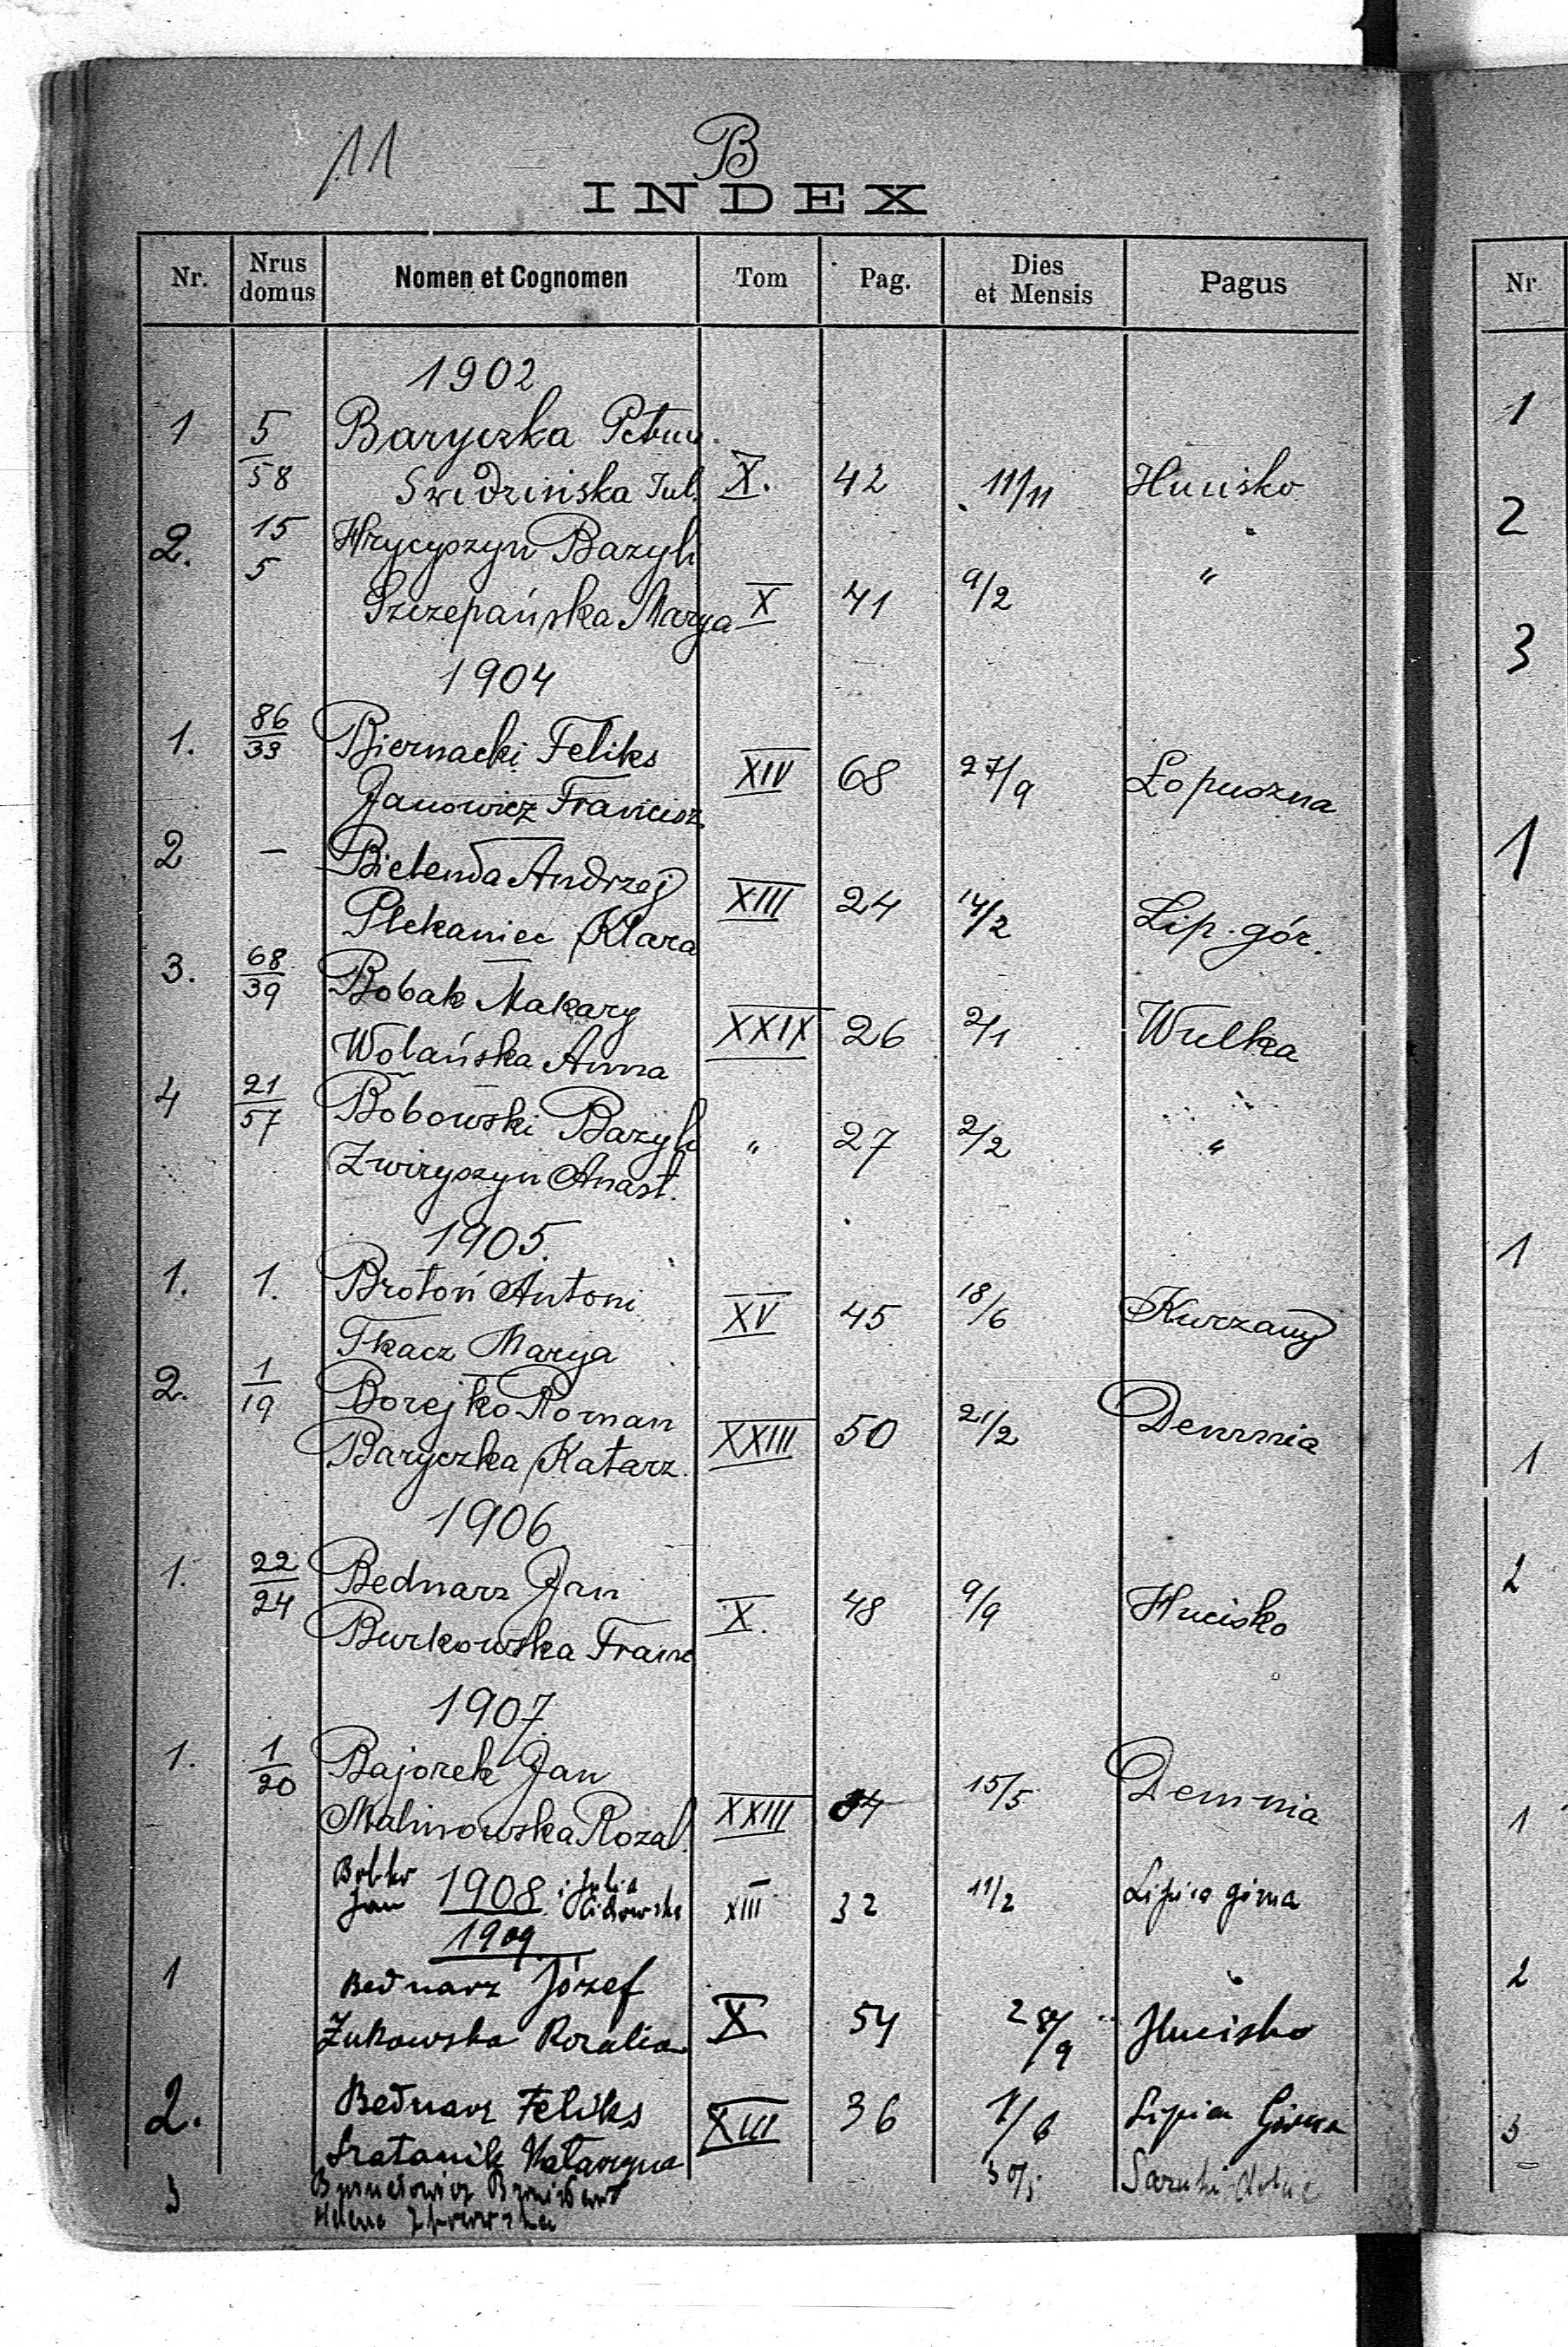 11
B
INDEX
Nr. Nrus domus Nomen et Cognomen Tom Pag. Dies et Mensis Pagus
1902
1 5 Baryczka Petrus
58 Swidzińska Jul. X. 42 11/11 Hucisko
2. 15 Hrycyszyn Bazyli
5 Szczepańska Marya X 41 9/2 "
1904
1. 86 Biernacki Feliks
39 Janowicz Francisz XIV 68 27/9 Łopuszna
2 — Bielenda Andrzej
Plekaniec Klara XIII 24 14/2 Lip. gór.
3. 68 Bobak Makary
39 Wolańska Anna XXIX 26 2/1 Wulka
4 21 Bobowski Bazyli
57 Zwiryszyn Anast. " 27 2/2 "
1905.
1. 1. Brotoń Antoni
Tkacz Marya XV 45 18/6 Kurzany
2. 1 Borejko Roman
19 Baryczka Katarz. XXIII 50 21/2 Demnia
1906
1. 22 Bednarz Jan
24 Burkowska Franc X. 48 9/9 Hucisko
1907.
1. 1 Bajorek Jan
20 Malinowska Rozal. XXIII 15/5 Demnia
Jan 1908 i Julia XIII 32 11/2 Lipica górna
1909
1 Bednarz Józef
Żukowska Rozalia X 54 28/9 Hucisko
2. Bednarz Feliks XIII 36 Lipica Górna
Katarzyna
3 30/5 Sarnki dolne
Helena
Nr
1
2
3
1
1
1
2
1
2
3